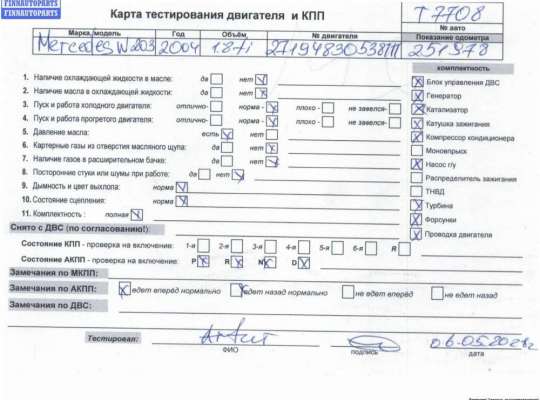 FINNAUTOPARTS
FINNAUTOPARTS
Карта тестирования двигателя и КПП
Т7708
№ авто
Марка, модель Год Объём, № двигателя Показание одометра
Mercedes W203 2004 1.8i 251978
комплектность
1. Наличие охлаждающей жидкости в масле: да нет
2. Наличие масла в охлаждающей жидкости: да нет
3. Пуск и работа холодного двигателя: отлично- норма - плохо - не завелся-
4. Пуск и работа прогретого двигателя: отлично- норма - плохо - не завелся-
5. Давление масла: есть нет
6. Картерные газы из отверстия масляного щупа: да нет
7. Наличие газов в расширительном бачке: да нет
8. Посторонние стуки или шумы при работе: да нет
9. Дымность и цвет выхлопа: норма
10. Состояние сцепления: норма
11. Комплектность : полная
Блок управления ДВС
Генератор
Катализатор
Катушка зажигания
Компрессор кондиционера
Моновпрыск
Насос г/у
Распределитель зажигания
ТНВД
Турбина
Форсунки
Проводка двигателя
Снято с ДВС (по согласованию!):
Состояние КПП - проверка на включение: 1-я 2-я 3-я 4-я 5-я 6-я R
Состояние АКПП - проверка на включение: P R N D
Замечания по МКПП:
Замечания по АКПП: едет вперёд нормально едет назад нормально не едет вперёд не едет назад
Замечания по ДВС:
Тестировал:
ФИО подпись дата